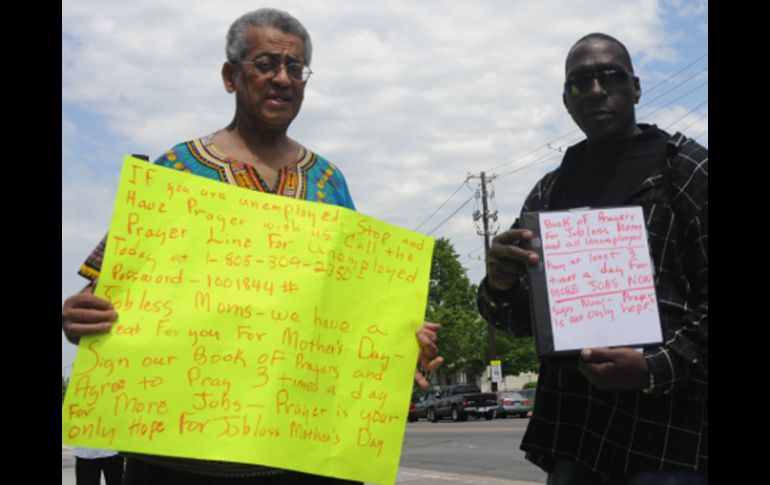 If you are unemployed Stop and
Have Prayer with us Call the
Prayer Line For Unemployed
Today at 1-805-309-2350
Password - 1001844 #
Jobless Moms - we have a
treat For you For Mother's Day -
Sign our Book of Prayers and
Agree to Pray 3 times a day
For More Jobs - Prayer is your
only Hope For Jobless Mother's Day
Book of Prayer
For Jobless Moms
and all unemployed
Pray at least 3
times a day For
MORE JOBS NOW
Sign Now - Prayer
is our only hope"